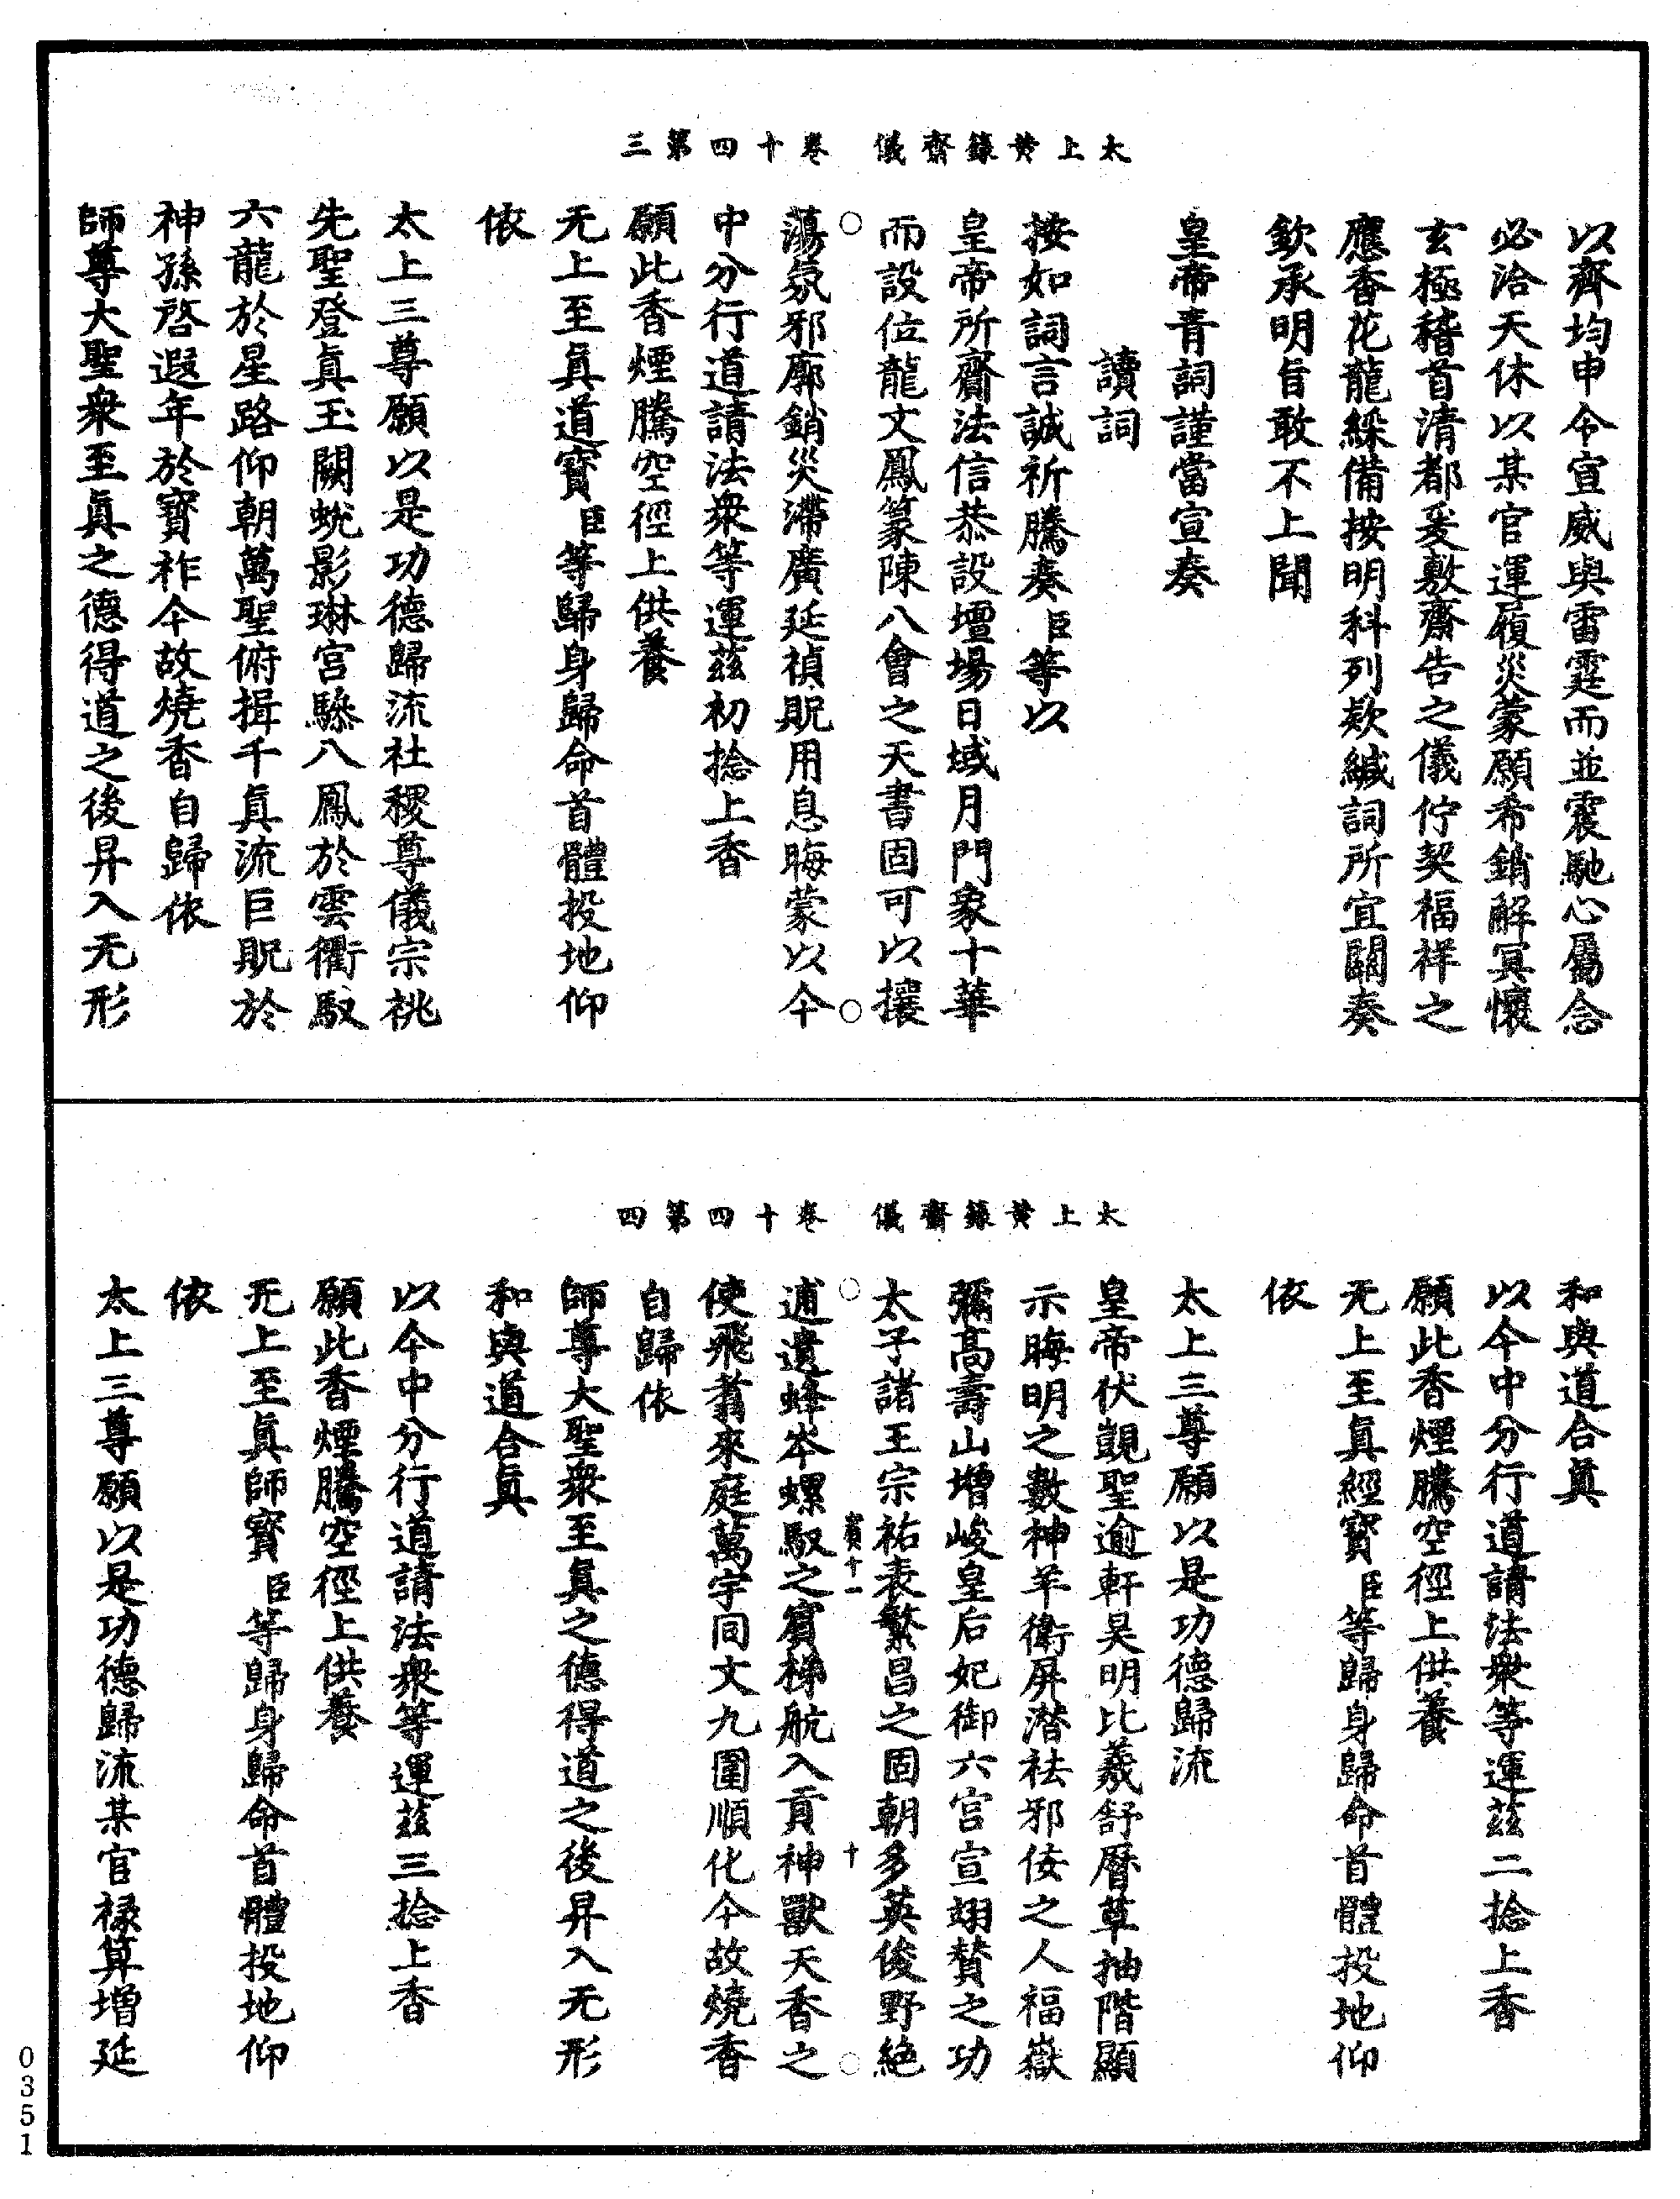 太上黃籙齋儀　卷十四第三
以齊均申令宣威與雷霆而並震馳心屬念
必洽天休以某官運履災蒙願希銷解冥懷
玄極稽首清都爰敷齋告之儀佇契福祥之
應香花龍綵備按明科列欵緘詞所宜關奏
欽承明旨敢不上聞
皇帝青詞謹當宣奏
讀詞
按如詞言誠祈騰奏臣等以
皇帝所齎法信恭設壇場日域月門象十華
而設位龍文鳳篆陳八會之天書固可以攘
蕩氛邪廓銷災滯廣延禎貺用息晦蒙以今
中分行道請法衆等運茲初捻上香
願此香煙騰空徑上供養
无上至真道寶臣等歸身歸命首體投地仰
依
太上三尊願以是功德歸流社稷尊儀宗祧
先聖登真玉闕蛻影琳宮驂八鳳於雲衢馭
六龍於星路仰朝萬聖俯揖千真流巨貺於
神孫啓遐年於寶祚今故燒香自歸依
師尊大聖衆至真之德得道之後昇入无形
太上黃籙齋儀　卷十四第四
和與道合真
以今中分行道請法衆等運茲二捻上香
願此香煙騰空徑上供養
无上至真經寶臣等歸身歸命首體投地仰
依
太上三尊願以是功德歸流
皇帝伏覬聖逾軒昊明比羲舒曆草抽階顯
示晦明之數神羊衛屏潛祛邪佞之人福嶽
彌高壽山增峻皇后妃御六宮宣翊贊之功
太子諸王宗祐表繁昌之固朝多英俊野絶
逋遺蜂岑螺馭之賓梯航入貢神獸天香之
賓十一
十
使飛翥來庭萬宇同文九圍順化今故燒香
自歸依
師尊大聖衆至真之德得道之後昇入无形
和與道合真
以今中分行道請法衆等運茲三捻上香
願此香煙騰空徑上供養
无上至真師寶臣等歸身歸命首體投地仰
依
太上三尊願以是功德歸流某官祿算增延
0351